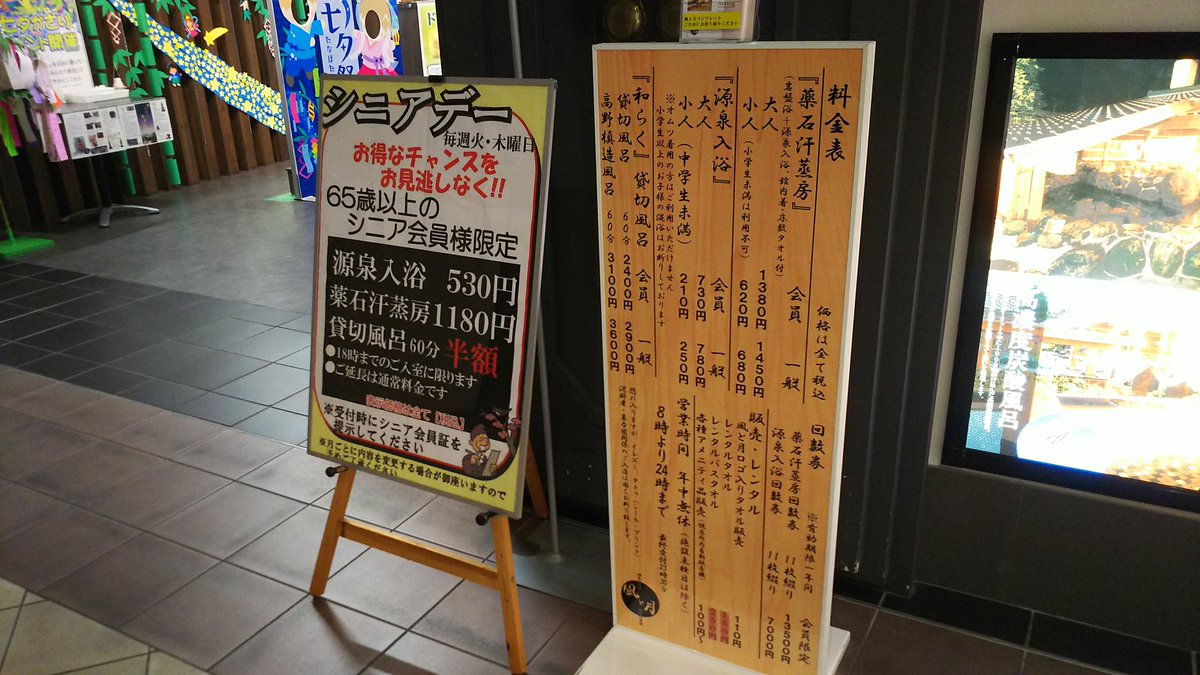 七夕かざり
七夕祭
たなばた
シニアデー
毎週火・木曜日
お得なチャンスを
お見逃しなく!!
65歳以上の
シニア会員様限定
源泉入浴 530円
薬石汗蒸房 1180円
貸切風呂 60分 半額
●18時までのご入室に限ります
●ご延長は通常料金です
表示価格は全て【税込】
※受付時にシニア会員証を
提示してください
※月ごとに内容を変更する場合が御座いますので
料金表
価格は全て税込
『薬石汗蒸房』 会員 一般
(岩盤浴+源泉入浴、館内着・床敷タオル付)
大人 1380円 1450円
小人(小学生未満は利用不可) 620円 680円
『源泉入浴』 会員 一般
大人 730円 780円
小人(中学生未満) 210円 250円
※オムツ着用の方はご利用いただけません
小学生以上のお子様の混浴はお断りしております
『和らく』貸切風呂 会員 一般
貸切風呂 60分 2400円 2900円
高野槙造風呂 60分 3100円 3600円
回数券 ※有効期限一年間 会員限定
薬石汗蒸房回数券 11枚綴り 13500円
源泉入浴回数券 11枚綴り 7000円
販売・レンタル
風と月ロゴ入りタオル販売 110円
レンタルタオル
レンタルバスタオル
各種アメニティ品販売 100円～
営業時間 年中無休(施設点検日は除く)
8時より24時まで 最終受付23時30分
風と月
炭酸風呂